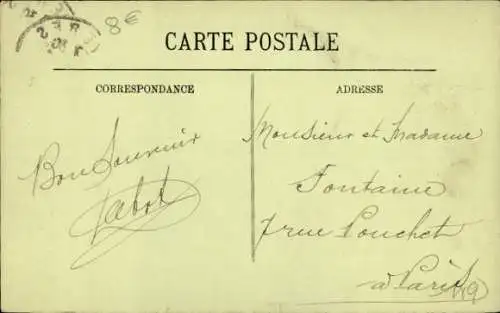 8€
CARTE POSTALE
CORRESPONDANCE
ADRESSE
Bon Souvenir
Monsieur et Madame
Fontaine
7 rue Pouchet
à Paris